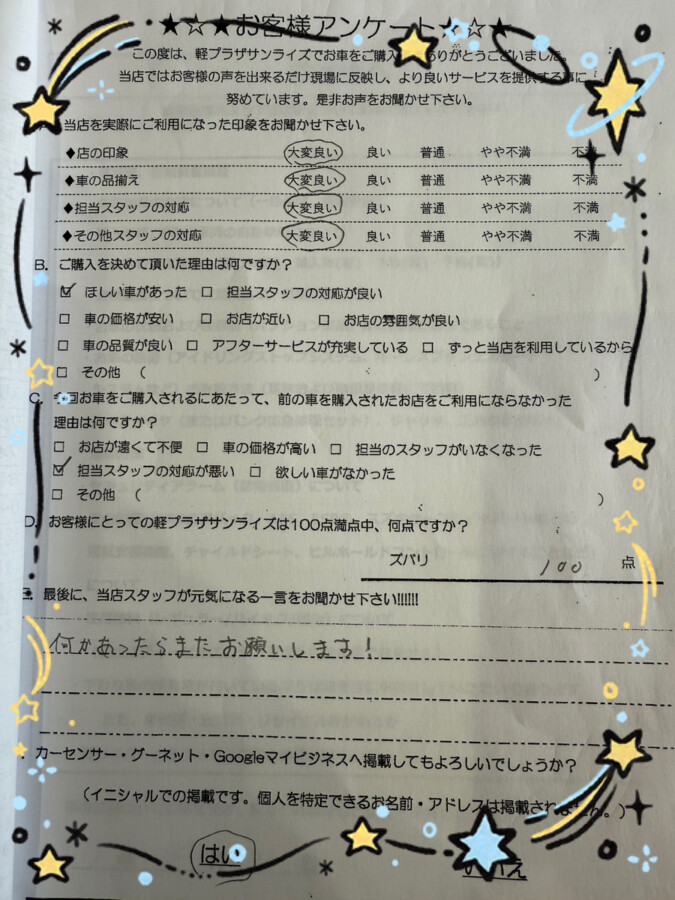 ★☆★お客様アンケート☆☆★
この度は、軽プラザサンライズでお車をご購入 ありがとうございました。
当店ではお客様の声を出来るだけ現場に反映し、より良いサービスを提供する事に
努めています。是非お声をお聞かせ下さい。
当店を実際にご利用になった印象をお聞かせ下さい。
◆店の印象 大変良い 良い 普通 やや不満 不満
◆車の品揃え 大変良い 良い 普通 やや不満 不満
◆担当スタッフの対応 大変良い 良い 普通 やや不満 不満
◆その他スタッフの対応 大変良い 良い 普通 やや不満 不満
B. ご購入を決めて頂いた理由は何ですか？
☑ ほしい車があった □ 担当スタッフの対応が良い
□ 車の価格が安い □ お店が近い □ お店の雰囲気が良い
□ 車の品質が良い □ アフターサービスが充実している □ ずっと当店を利用しているから
□ その他 （ ）
C. 今回お車をご購入されるにあたって、前の車を購入されたお店をご利用にならなかった
理由は何ですか？
□ お店が遠くて不便 □ 車の価格が高い □ 担当のスタッフがいなくなった
☑ 担当スタッフの対応が悪い □ 欲しい車がなかった
□ その他 （ ）
D. お客様にとっての軽プラザサンライズは100点満点中、何点ですか？
ズバリ 100 点
最後に、当店スタッフが元気になる一言をお聞かせ下さい!!!!!!
何かあったらまたお願いします！
カーセンサー・グーネット・Googleマイビジネスへ掲載してもよろしいでしょうか？
（イニシャルでの掲載です。個人を特定できるお名前・アドレスは掲載されません。）
はい いいえ